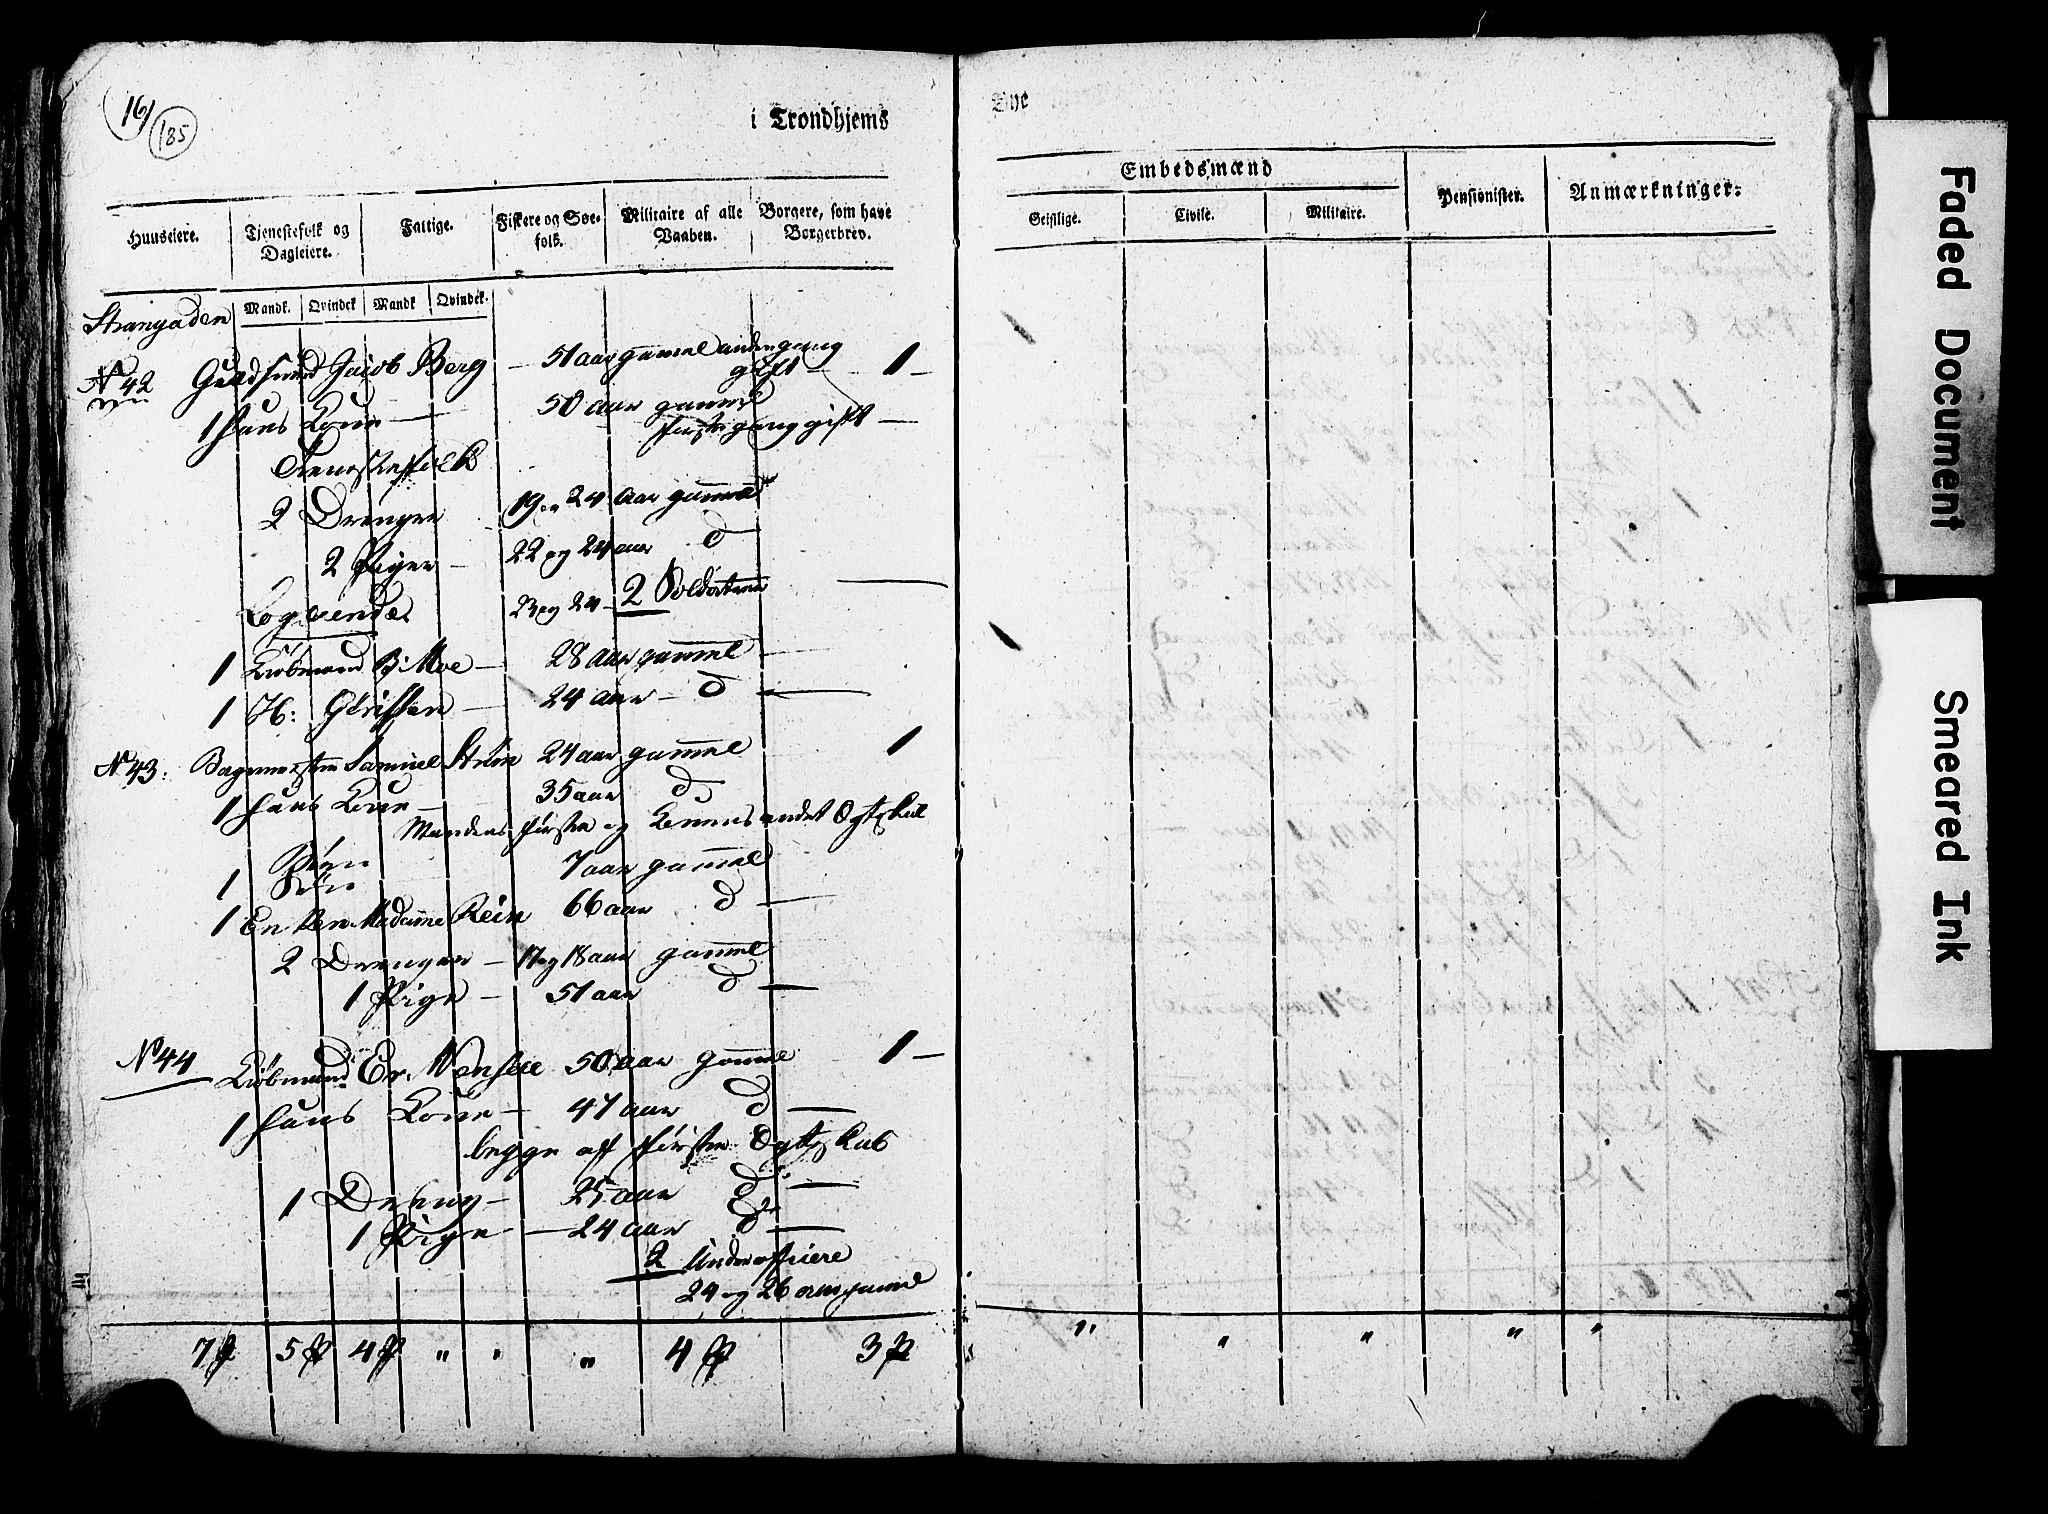 16)
185
i Trondhjems
Bye
Huuseiere.
Tjenestefolk og Dagleiere.
Fattige.
Fiskere og Søefolk.
Militaire af alle Vaaben.
Borgere, som have Borgerbrev.
Mandk. Qvindek Mandk Qvindek.
Embedsmænd
Geistlige.
Civile.
Militaire.
Pensionister.
Anmærkninger.
Strangaden
No 42 Guldsmed Jacob Berg — 51 aar gamel anden gang gift — 1 —
1 hans Kone — 50 aar gamel første gang gift —
Tieneste folk
2 Drenge 19 og 24 aar gammel
2 Piger — 22 og 24 aar d
Logerende 23 og 24 — 2 Soldatter
1 Kiøbmand B: Moe — 28 aar gammel —
1 H: Gørissen — 24 aar — d —
No 43: Bagermester Samuel Strøm 24 aar gammel 1
1 hans Kone — 35 aar d
Mandens første og Konens andet Ægteskab
Børn
1 Søn 7 aar gammel
1 Enken Madamme Rein 66 aar d —
2 Drenger — 17 og 18 aar gammel
1 Pige — 51 aar d —
No 44 Kiøbmand Er. Wensell 50 aar gammel 1 —
1 hans Kone — 47 aar d —
begge af første Ægteskab
1 Dreng — 25 aar d —
1 Pige — 24 aar d —
2 Underofficiere
24 og 26 aar gamel
7 5 4 " " " 4 3
" " " " "
Faded Document
Smeared Ink